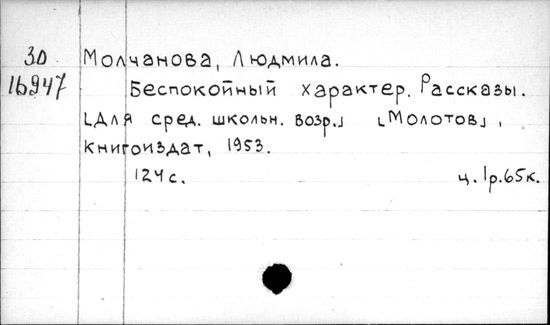 3D
16947
Молчанова, Людмила.
Беспокойный характер. Рассказы.
⌊Для сред. школьн. возр.⌋ ⌊Молотов⌋,
Книгоиздат, 1953.
124 с. ц. 1р.65к.